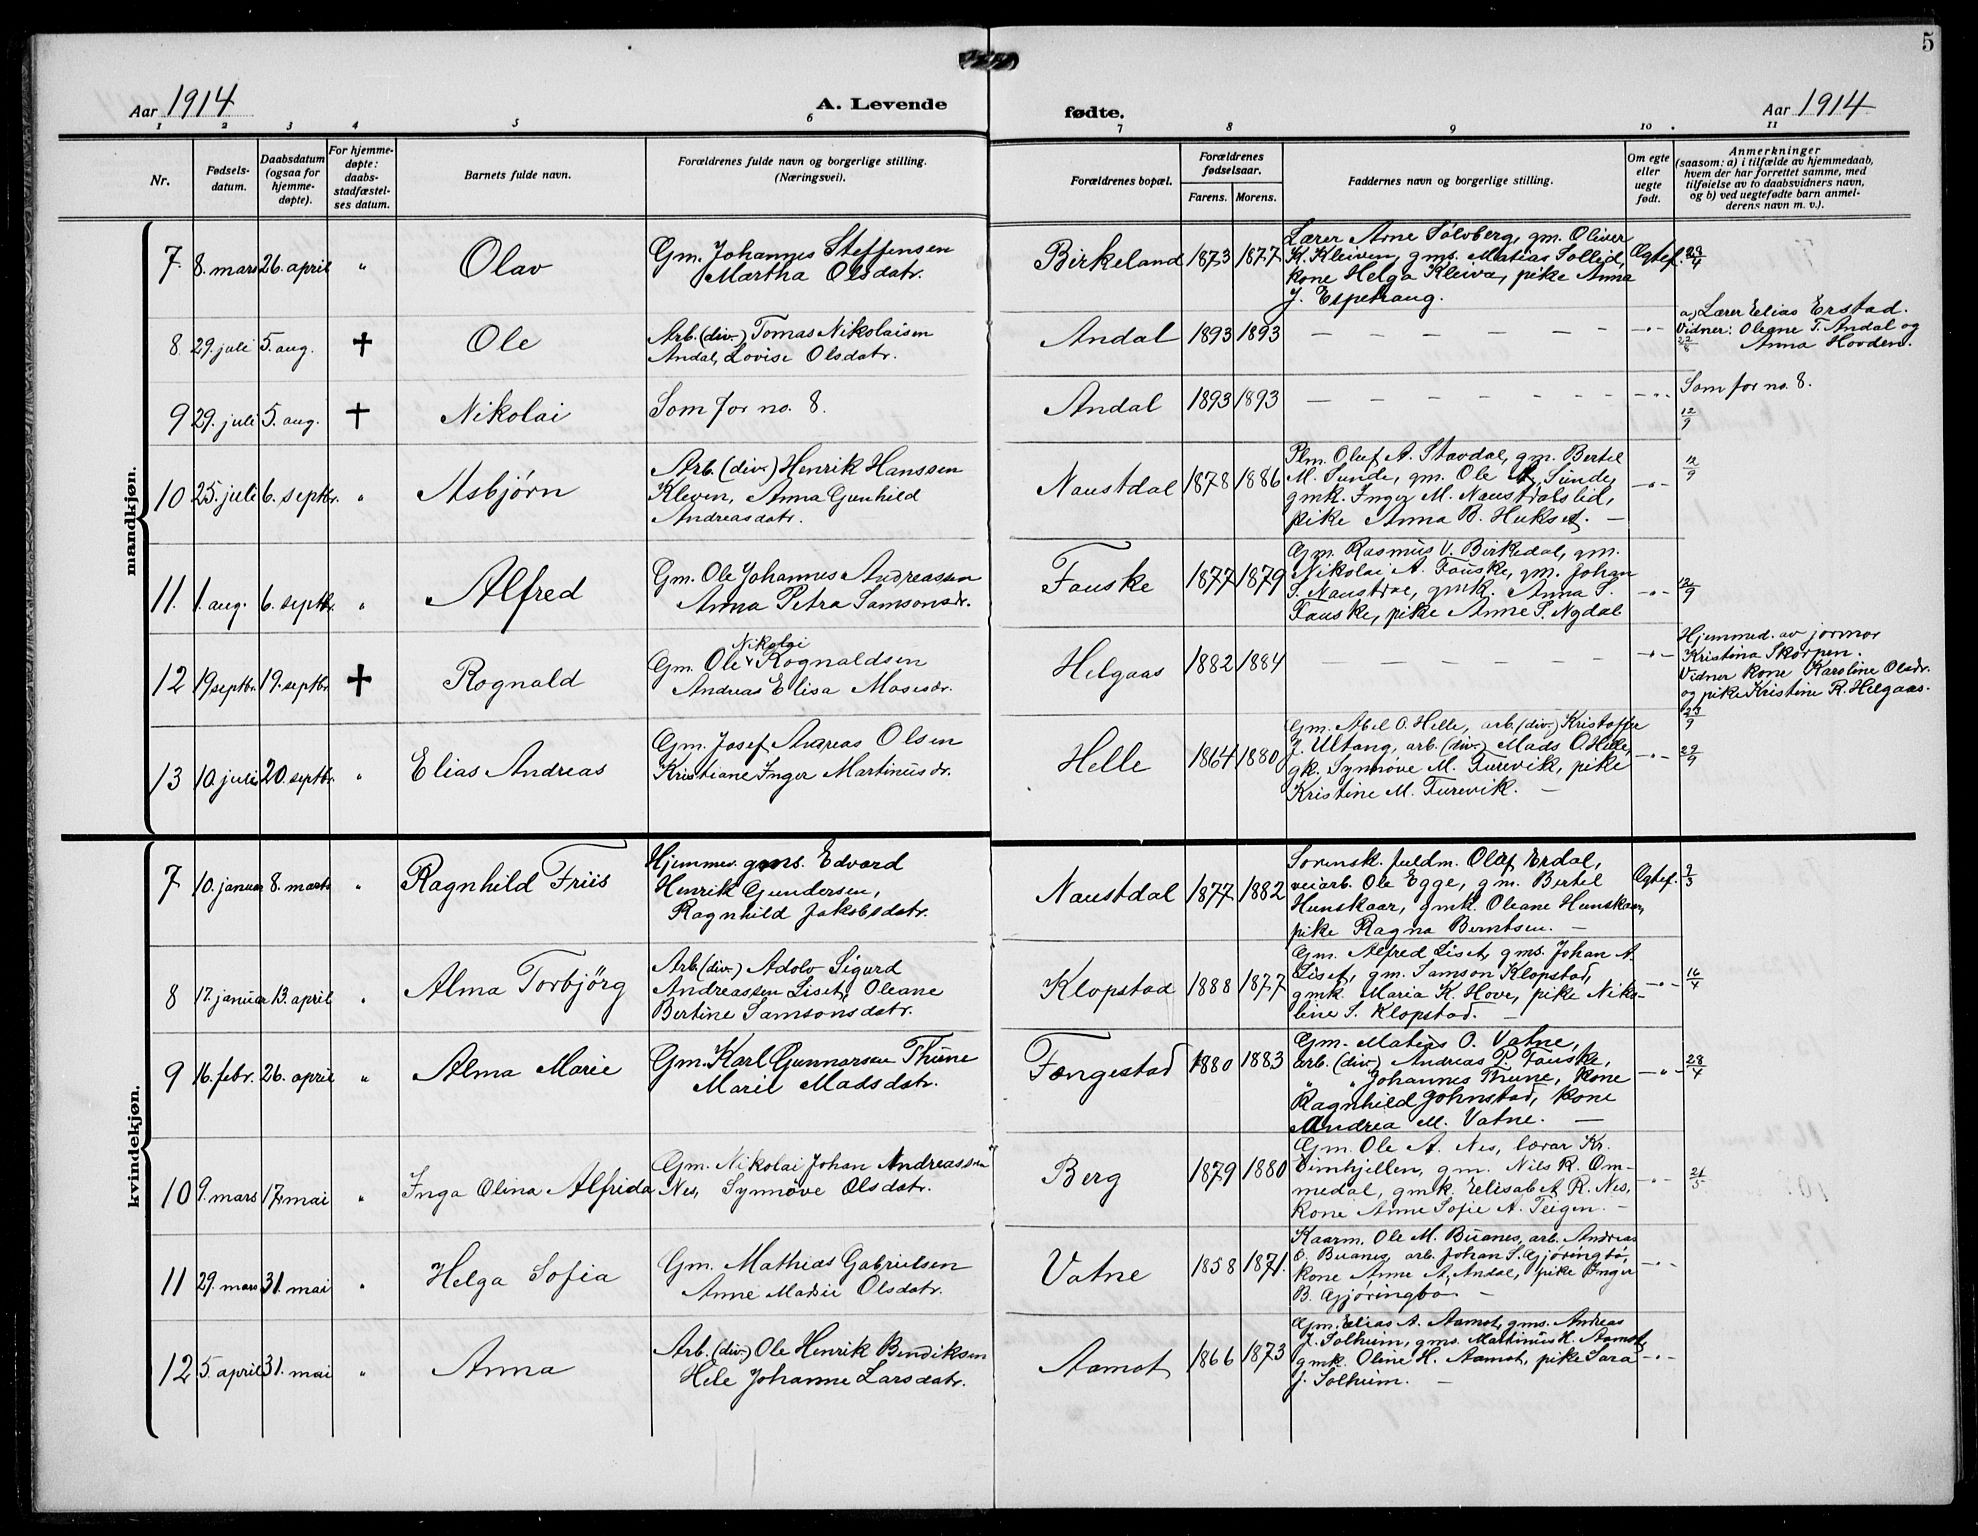 5
Aar 1914
A. Levende
fødte.
Aar 1914
1 2 3 4 5 6 7 8 9 10 11
Nr.
Fødsels-
datum.
Daabsdatum
(ogsaa for
hjemme-
døpte).
For hjemme-
døpte:
daabs-
stadfæstel-
ses datum.
Barnets fulde navn.
Forældrenes fulde navn og borgerlige stilling.
(Næringsvei).
Forældrenes bopæl.
Forældrenes
fødselsaar.
Farens. Morens.
Faddernes navn og borgerlige stilling.
Om egte
eller
uegte
født.
Anmerkninger
(saasom: a) i tilfælde av hjemmedaab,
hvem der har forrettet samme, med
tilføielse av to daabsvidners navn,
og b) ved uegtefødte barn anmel-
derens navn m. v.).
mandkjøn.
7. 8. mars 26. april " Olav
Gm. Johannes Steffensen
Martha Olsdatr.
Birkeland 1873 1877
Lærer Arne Sølvberg, gm. Oliver
K. Kleiven, gms. Matias Sollid,
kone Helga Kleiva, pike Anna
J. Espetvang.
Egtef. 28/4
8 29. juli 5. aug. ✝ Ole
Arb. (div.) Tomas Nikolaisen
Andal, Lovise Olsdatr.
Andal 1893 1893 — — — — — — —"—
a) Lærer Elias Erstad.
Vidner: Oleane T. Andal og
Anna Hovden.
22/8
9 29. juli 5. aug. ✝ Nikolai
Som for no. 8.
Andal 1893 1893 — — — — — — —"—
Som for no. 8.
12/9
10 25. juli 6. septbr. " Asbjørn
Arb. (div.) Henrik Hanssen
Kleven, Anna Gunhild
Andreasdatr.
Naustdal 1878 1886
Plm. Oluf A. Stavdal, gm. Bertel
M. Sunde, gm. Ole A. Sunde,
gmk. Inger M. Naustdalslid,
pike Anna B. Hukset. —
—"— 12/9
11. 1. aug. 6. septbr. " Alfred
Gm. Ole Johannes Andreassen
Anna Petra Samsonsdr.
Fauske 1877 1879
Gm. Rasmus V. Birkedal, gm.
Nikolai A. Fauske, gm. Johan
S. Naustdal, gmk. Anna S.
Fauske, pike Anne S. Nydal
—"— 12/9
12 19 septbr. 19. septbr. ✝ Rognald
Nikolai
Gm. Ole ˅ Rognaldsen
Andreas Elisa Mosesdr.
Helgaas 1882 1884 — — — — — — —"—
Hjemmed. av jormor
Kristina Skorpen.
Vidner kone Karoline Olsdr.
og pike Kristine R. Helgaas.
23/9
13 10. juli 20. septbr. " Elias Andreas
Gm. Josef Andreas Olsen
Kristiane Inger Martinusdr.
Helle 1864 1880
Gm. Abel O. Helle, arb. (div.) Kristoffer
J. Ultang, arb. (div.) Mads O. Helle,
gk. Synnøve M. Furevik, pike
Kristine M. Furevik. —
—"— 29/9
kvindekjøn.
7 10. januar 8. marts " Ragnhild Friis
Hjemmes. gms. Edvard
Henrik Gundersen,
Ragnhild Jakobsdatr.
Naustdal 1877 1882
Sorensk. fuldm. Olaf Erdal,
veiarb. Ole Egge, gm. Bertel
Hunskaar, gmk. Oleane Hunskaar,
pike Ragna Berntsen. —
Egtef. 9/3
8 17. januar 13. april " Alma Torbjörg
Arb. (div.) Adolv Sigurd
Andreassen Liset, Oleane
Bertine Samsonsdatr.
Klopstad 1888 1877
Gm. Alfred Liset, gms. Johan A.
Liset, gm. Samson Klopstad,
gmk. Maria K. Hove, pike Niko-
line S. Klopstad. —
—"— 16/4
9 16. febr. 26. april " Alma Marie
Gm. Karl Gunnarsen Thune
Marie Madsdatr.
Fængestad 1880 1883
Gm. Matias O. Vatne,
arb. (div.) Andreas P. Fauske,
" " Johannes Thune, kone
Ragnhild Johnstad, kone
Andrea M. Vatne. —
—"— 28/4
10 9. mars 17. mai " Inga Olina Alfrida
Gm. Nikolai Johan Andreassen
Nes, Synnøve Olsdatr.
Berg 1879 1880
Gm. Ole A. Nes, lærar Kr.
Eimhjellen, gm. Nils R. Om-
medal, gmk. Elisabet R. Nes,
kone Anne Sofie A. Teigen. —
—"— 21/5
11 29. mars 31. mai " Helga Sofia
Gm. Mathias Gabrielsen
Anne Marie Olsdatr.
Vatne 1858 1871.
Kaarm. Ole M. Buanes, arb. Andrias
O. Buanes, arb. Johan S. Gjøringbø,
kone Anne A. Andal, pike Inger
B. Gjøringbø. —
—"—
12 5. april 31. mai " Anna
Arb. (div.) Ole Henrik Bendiksen
Hele Johanne Larsdatr.
Aamot 1866 1873
Gm. Elias A. Aamot, gms. Andreas
J. Solheim, gms. Martinus H. Aamot,
gmk. Oline H. Aamot, pike Sara
J. Solheim. —
—"—